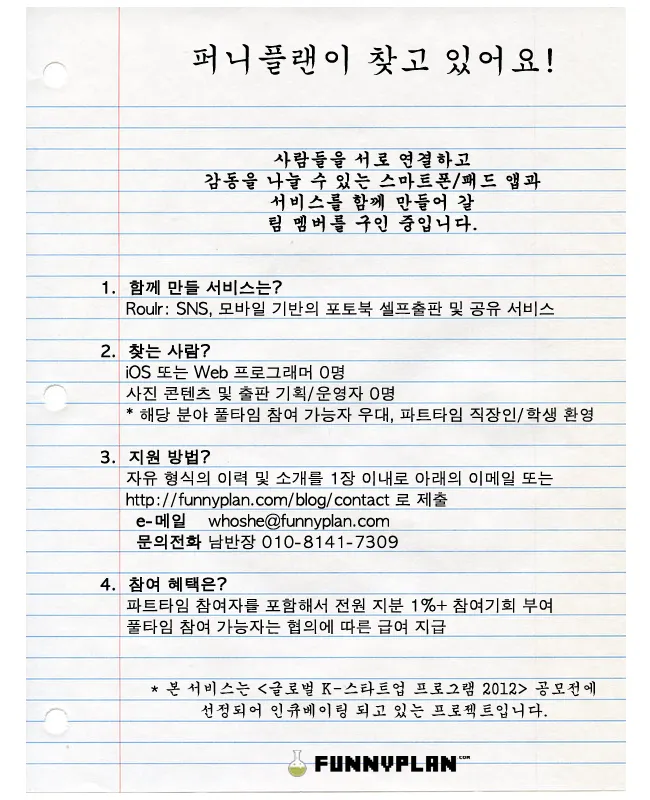 퍼니플랜이 찾고 있어요!
사람들을 서로 연결하고
감동을 나눌 수 있는 스마트폰/패드 앱과
서비스를 함께 만들어 갈
팀 멤버를 구인 중입니다.
1. 함께 만들 서비스는?
Roulr: SNS, 모바일 기반의 포토북 셀프출판 및 공유 서비스
2. 찾는 사람?
iOS 또는 Web 프로그래머 0명
사진 콘텐츠 및 출판 기획/운영자 0명
* 해당 분야 풀타임 참여 가능자 우대, 파트타임 직장인/학생 환영
3. 지원 방법?
자유 형식의 이력 및 소개를 1장 이내로 아래의 이메일 또는
http://funnyplan.com/blog/contact 로 제출
e-메일 whoshe@funnyplan.com
문의전화 남반장 010-8141-7309
4. 참여 혜택은?
파트타임 참여자를 포함해서 전원 지분 1%+ 참여기회 부여
풀타임 참여 가능자는 협의에 따른 급여 지급
* 본 서비스는 <글로벌 K-스타트업 프로그램 2012> 공모전에
선정되어 인큐베이팅 되고 있는 프로젝트입니다.
FUNNYPLAN.COM